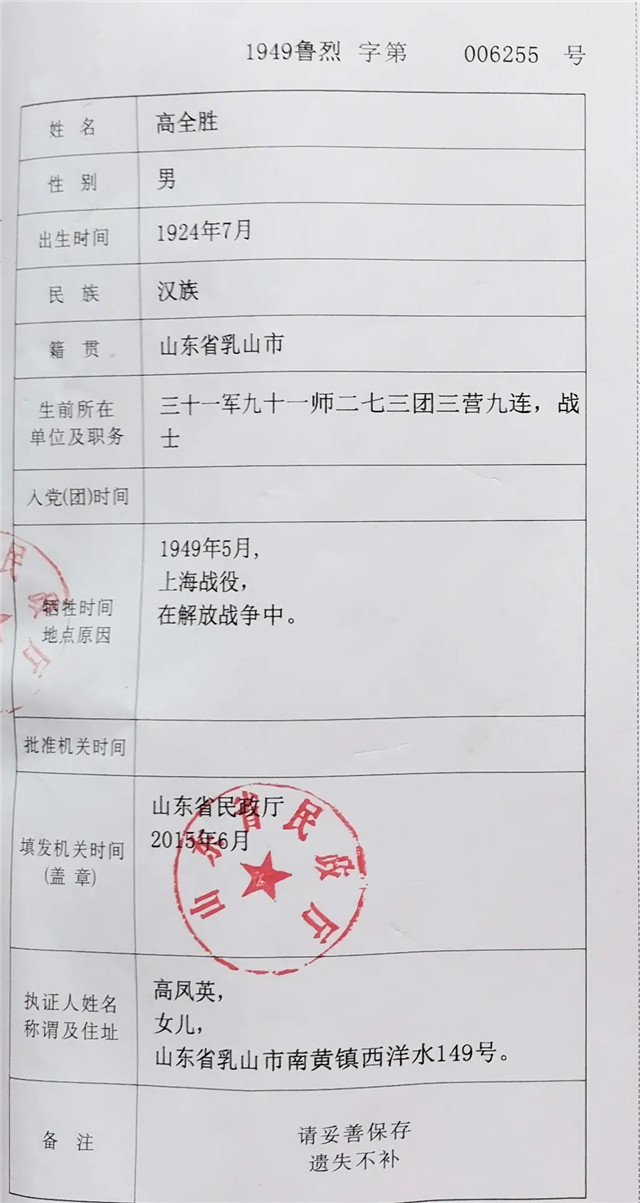 1949鲁烈 字第 006255 号
姓 名 高全胜
性 别 男
出生时间 1924年7月
民 族 汉族
籍 贯 山东省乳山市
生前所在
单位及职务
三十一军九十一师二七三团三营九连，战
士
入党(团)时间
牺牲时间
地点原因
1949年5月，
上海战役，
在解放战争中。
批准机关时间
填发机关时间
(盖 章)
山东省民政厅
2015年6月
山东省民政厅
执证人姓名
称谓及住址
高凤英，
女儿，
山东省乳山市南黄镇西洋水149号。
备 注
请妥善保存
遗失不补
民政厅